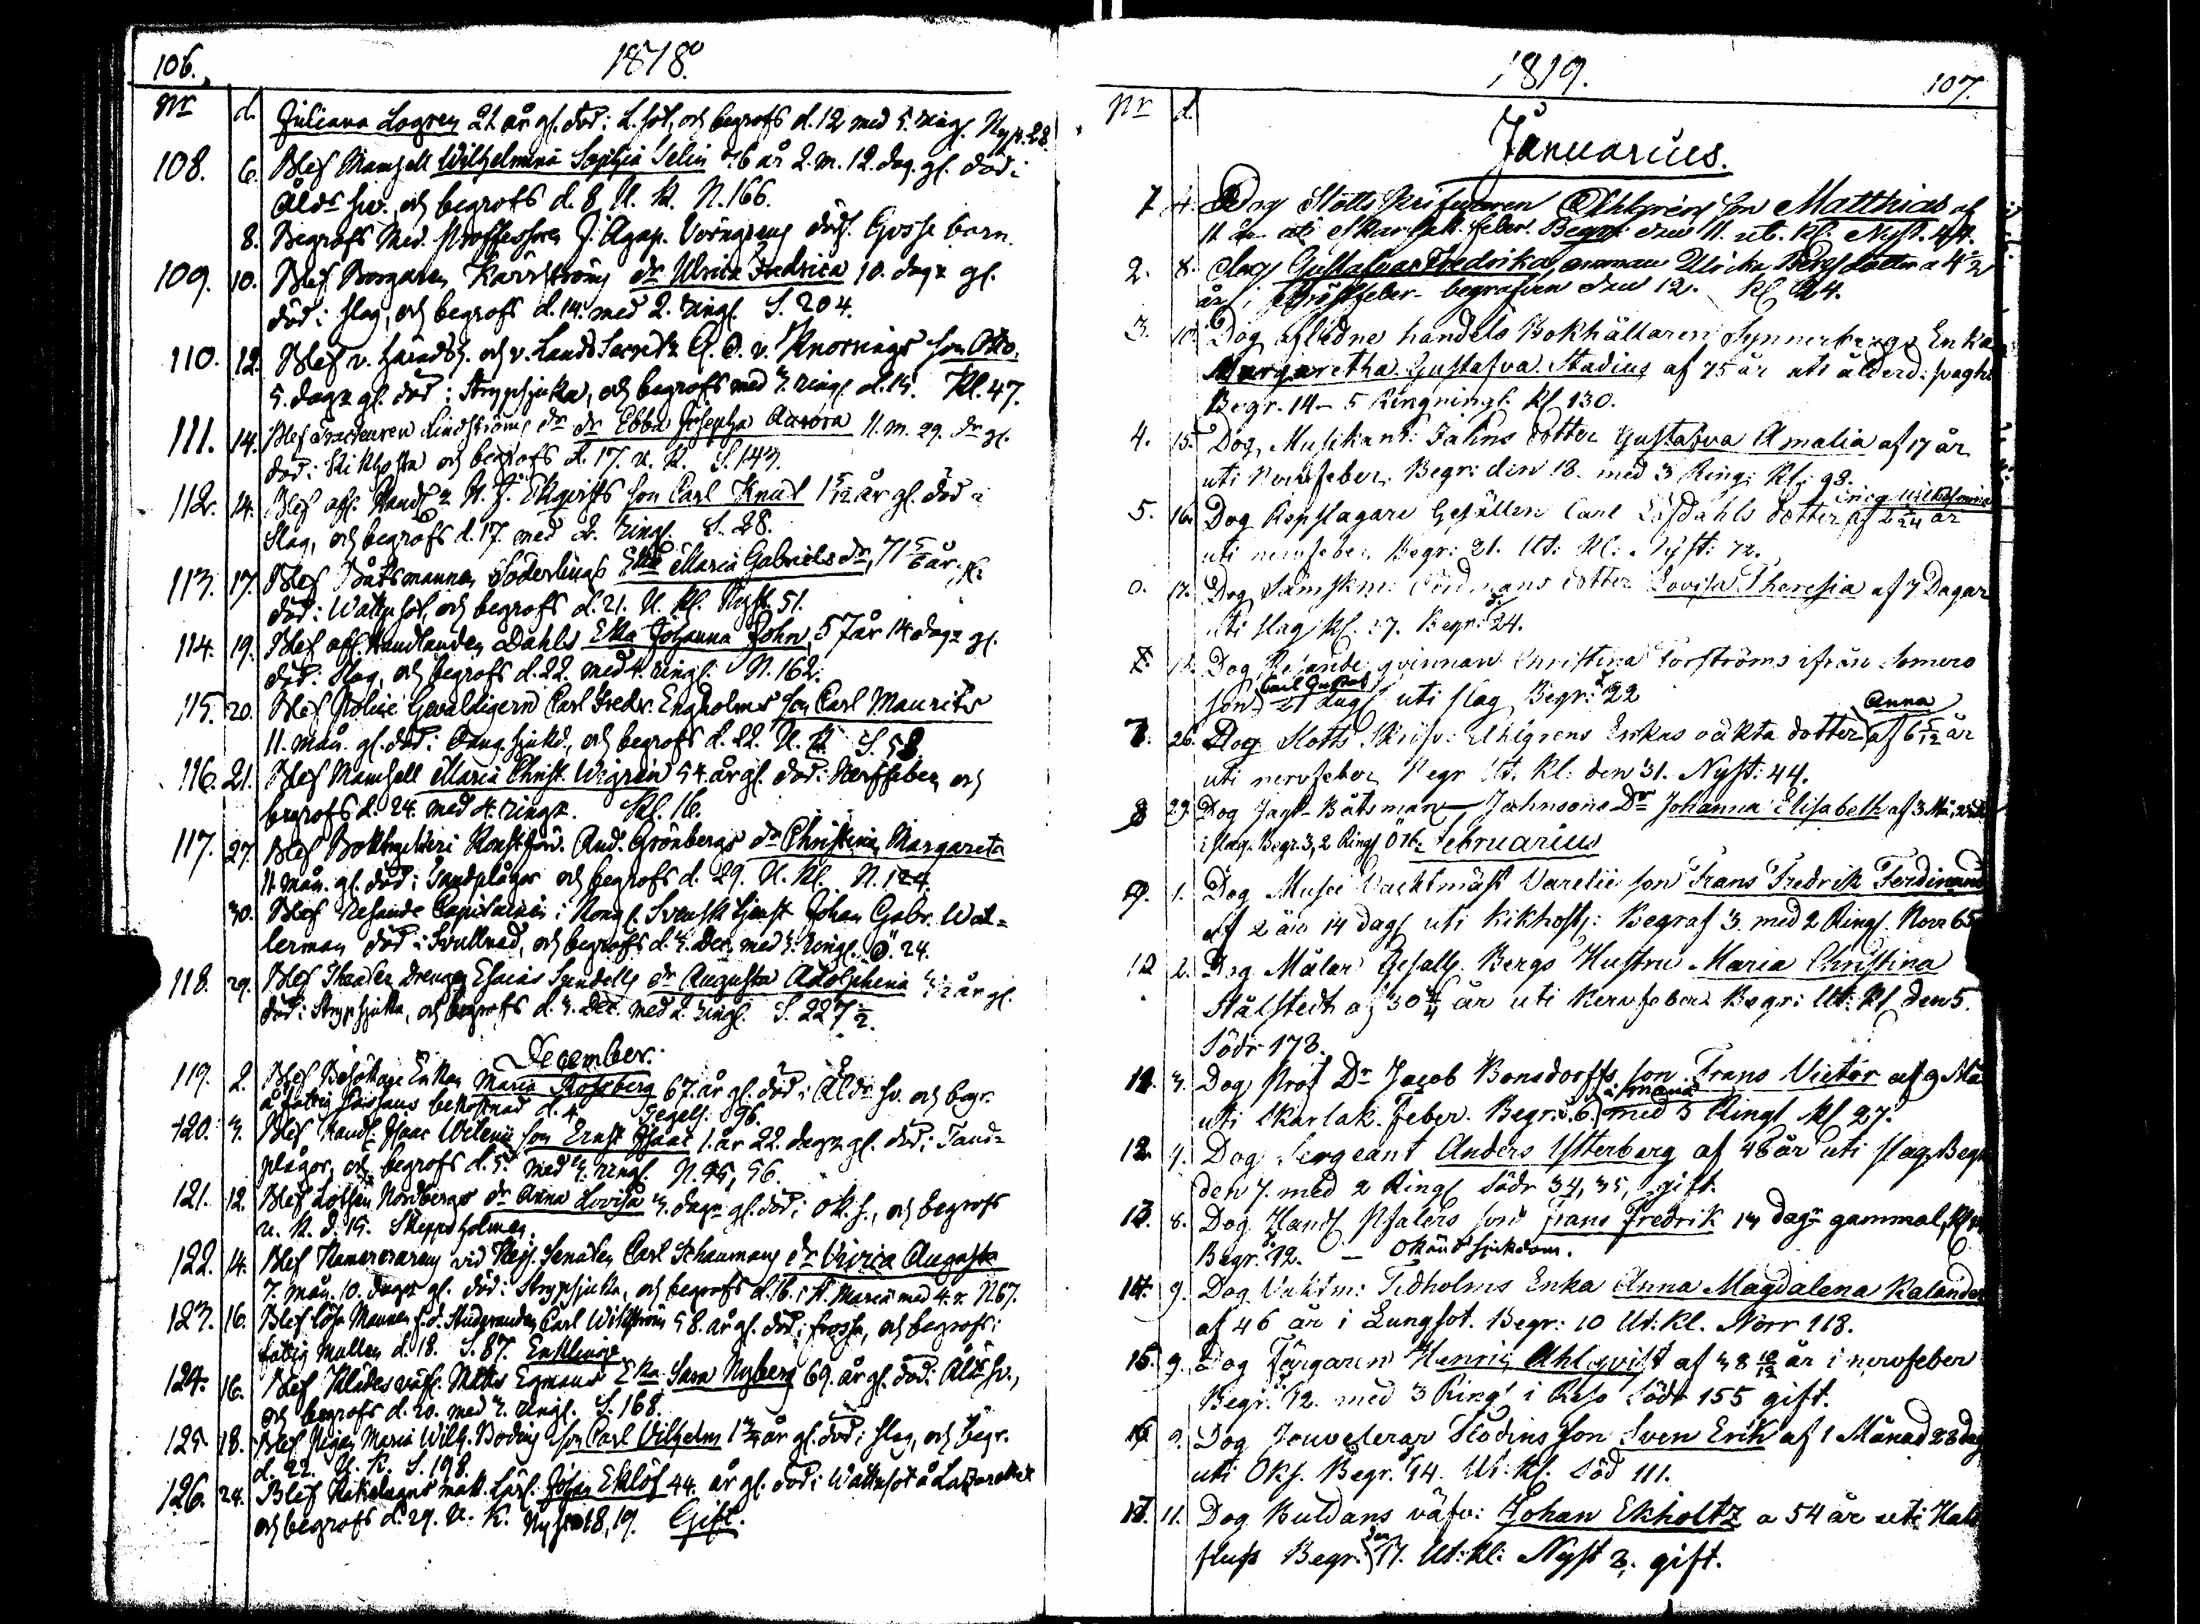 106.
1818.
Nr d.
Juliana Logren 21 år gl. död i L. sot, och begrofs d. 12 med 5. ringr. Nyst. 28.
108. 6. Blef Mamsell Wilhelmina Sophia Selin 76 år 2. m. 12. dag. gl. död i
Ålds sw., och begrofs d. 8. U. K. N. 166.
8. Begrofs Med. Professoren J. Agap. Törngrens dödf. Gosse barn.
109. 10. Blef Borgaren Karlströms dr Ulrica Fredrica 10. dagr gl.
död i slag, och begrofs d. 14. med 2. ringr. S. 204.
110. 12. Blef v. Häradsh. och v. Lands Secret: C. O. v. Knorrings son Otto,
5. dagr gl. död i Strypsjuka, och begrofs med 3. ringr d. 15. Kl. 47.
111. 14. Blef Tracteuren Lindströms dr Ebba Josepha Aurora 11. m. 29. dr gl.
död i Kikhosta och begrofs d. 17. U. K. S. 143.
112. 14. Blef afl. Handl. N. J. Ekqvists son Carl Knut 1 5/12 år gl. död i
Slag, och begrofs d. 17. med 2. ringr. S. 28.
113. 17. Blef Båtsmannen Söderlings Eka Maria Gabriels dr, 71 5/6 år,
död i Wattusot, och begrofs d. 21. U. Kl. Nyst. 51.
114. 19. Blef afl. Handlanden Dahls Eka Johanna John, 57 år 14 dagr gl.
död i Slag, och begrofs d. 22. med 4. ringr. N. 162.
115. 20. Blef Police Gevaldigern Carl Fredr. Engholms son Carl Maurits
11. mån. gl. död i Bang sjukd., och begrofs d. 22. U. K. S. 58.
116. 21. Blef Mamsell Maria Christ. Wigren 54. år gl. död i Nerffeber, och
begrofs d. 24. med 4. ringr. Kl. 16.
117. 27. Blef Boktryckeri Konstförv. And. Grönbergs dr Christina Margareta
11 mån. gl. död i Tandplågor och begrofs d. 29. U. Kl. N. 124.
30. Blef Resande Capitainen i Kongl. Svensk tjenst Johan Gabr. Wal=
lerman död i Svullnad, och begrofs d. 3. Dec. med 3. ringr. Ö. 24.
118. 29. Blef Theater drengen Esaias Sundells dr Augusta Adolphina 3 1/2 år gl.
död i Strypsjuka, och begrofs d. 3. Dec. med 2. ringr. S. 227 1/2.
December.
119. 2. Blef Besökare Enkan Maria Roseberg 67. år gl. död i Ålds sv. och begr.
å fattig bekostnad d. 4. Tegels: 96.
120. 3. Blef Handl. Isaac Wilenii son Ernst Isaac 1. år 22. dagr gl. död i Tand=
plågor, och begrofs d. 5. med 3. ringr. N. 95, 96.
121. 12. Blef Lotsen Nordbergs dr Anna Lovisa 3. dagr gl. död i ok. s., och begrofs
u. K. d. 15. Skeppsholmen.
122. 14. Blef Kamereraren vid Kejs. Senaten Carl Schaumans dr Vivica Augusta
7. mån. 10. dagar gl. död i Strypsjuka, och begrofs d. 16. i St. Mariæ med 4. r. N 67.
123. 16. Blef Löse Mannen f. d. Studeranden Carl Wikström 58. år gl. död i frossa, och begrofs i
fattig mullen d. 18. S. 87. Enkling.
124. 16. Blef Klädesväfv. Matts Egmans Eka Sara Nyberg 69. år gl. död i Ålds sv.,
och begrofs d. 20. med 2. ringr. S. 168.
125. 18. Blef Pigan Maria Wilh. Bodins son Carl Vilhelm 1 3/4 år gl. död i slag, och begr.
d. 22. U. K. S. 198.
126. 24. Blef Kakelugns mak. Lärl. Johan Eklöf 44. år gl. död i Wattusot å Lazarettet
och begrofs d. 29. U. K. Nyst. 18, 19. Gift.
1819.
107.
Nr d.
Januarius.
1 4. Dog Slotts Skrifvaren Uhlgrens son Matthias af
11 år uti Skarlak. feber. Begr: den 11. ut. kl. Nyst. 44.
2. 8. Dog Gustafva Fredrika, Ulrika Bergs dotter a 4 1/2
år i feber - begrafven den 12. Kl 24.
3. 10. Dog afledne handels Bokhållaren Synnerbergs Enka
Margaretha Gustafva Stadius af 75 år uti ålderd: svaghet
Begr. 14 - 5 Ringningr. Kl 130.
4. 15. Dog Musikant: Jahns dotter Gustafva Amalia af 17 år
uti Nervfeber. Begr: den 18. med 3 Ring: Kl: 98.
5. 16. Dog Repslagare Gesällen Carl Löfdahls dotter Erica Wilhelmina af 2 1/24 år
uti nervfeber Begr: 21. Ut: Kl: Nyst: 72.
6. 17. Dog Sämskm: Nordmans dotter Lovisa Theresia af 7 Dagar
uti slag Kl. 37. Begr: d 24.
7. 18. Dog Resande qvinnan Christina Torströms ifrån Somero
son Carl Gustaf 21 dagr uti slag Begr: d 22
7. 26. Dog Slotts Skrifv: Uhlgrens Enkas oäkta dotter Anna af 6 5/12 år
uti nervfeber Begr Ut. Kl: den 31. Nyst: 44.
8 29. Dog Jagt-Båtsman Jahnsons Dr Johanna Elisabeth af 3 Må:
i slag. Begr. 3, 2 Ringr Ö 16.
Februarius
9. 1. Dog Musei Vachtmäst Varelii son Frans Fredrik Ferdinand
af 2 år 14 dagr uti kikhosta: Begraf 3. med 2 Ringr. Norr 65
10 2. Dog Målar Gesäll Bergs Hustru Maria Christina
Stålstedt af 30 3/4 år uti Nervfeber Begr: Ut: Kl den 5.
Södr 178.
11. 3. Dog Prof Dr Jacob Bonsdorffs son Frans Victor af 9 Må
uti Skarlak. feber. Begr. d. 6. med 5 Ringr Kl 27.
12. 4. Dog Sergeant Anders Ytterberg af 48 år uti slag. Begr
den 7. med 2 Ringr Södr 34, 35, gift.
13. 8. Dog Handl Psalers son Frans Fredrik 14 dagr gammal,
Begr. d 12. - Okänd sjukdom.
14. 9. Dog Vaktm: Tidholms Enka Anna Magdalena Kalander
af 46 år i Lungsot. Begr: 10 Ut: kl. Norr 118.
15. 9. Dog Färgaren Henric Ahlqvist af 38 10/12 år i nervfeber
Begr. d 12. med 3 Ringr i Reso Södr 155 gift.
16. 9. Dog Jouvelerar Flodins son Sven Erik af 1 Månad 28 dag
uti Oks. Begr. d 14. Ut: Kl. Söd 111.
17. 11. Dog Buldans väfv: Johan Ekholtz a 54 år uti Hals
fluss Begr: den 17. Ut: kl: Nyst 3. gift.